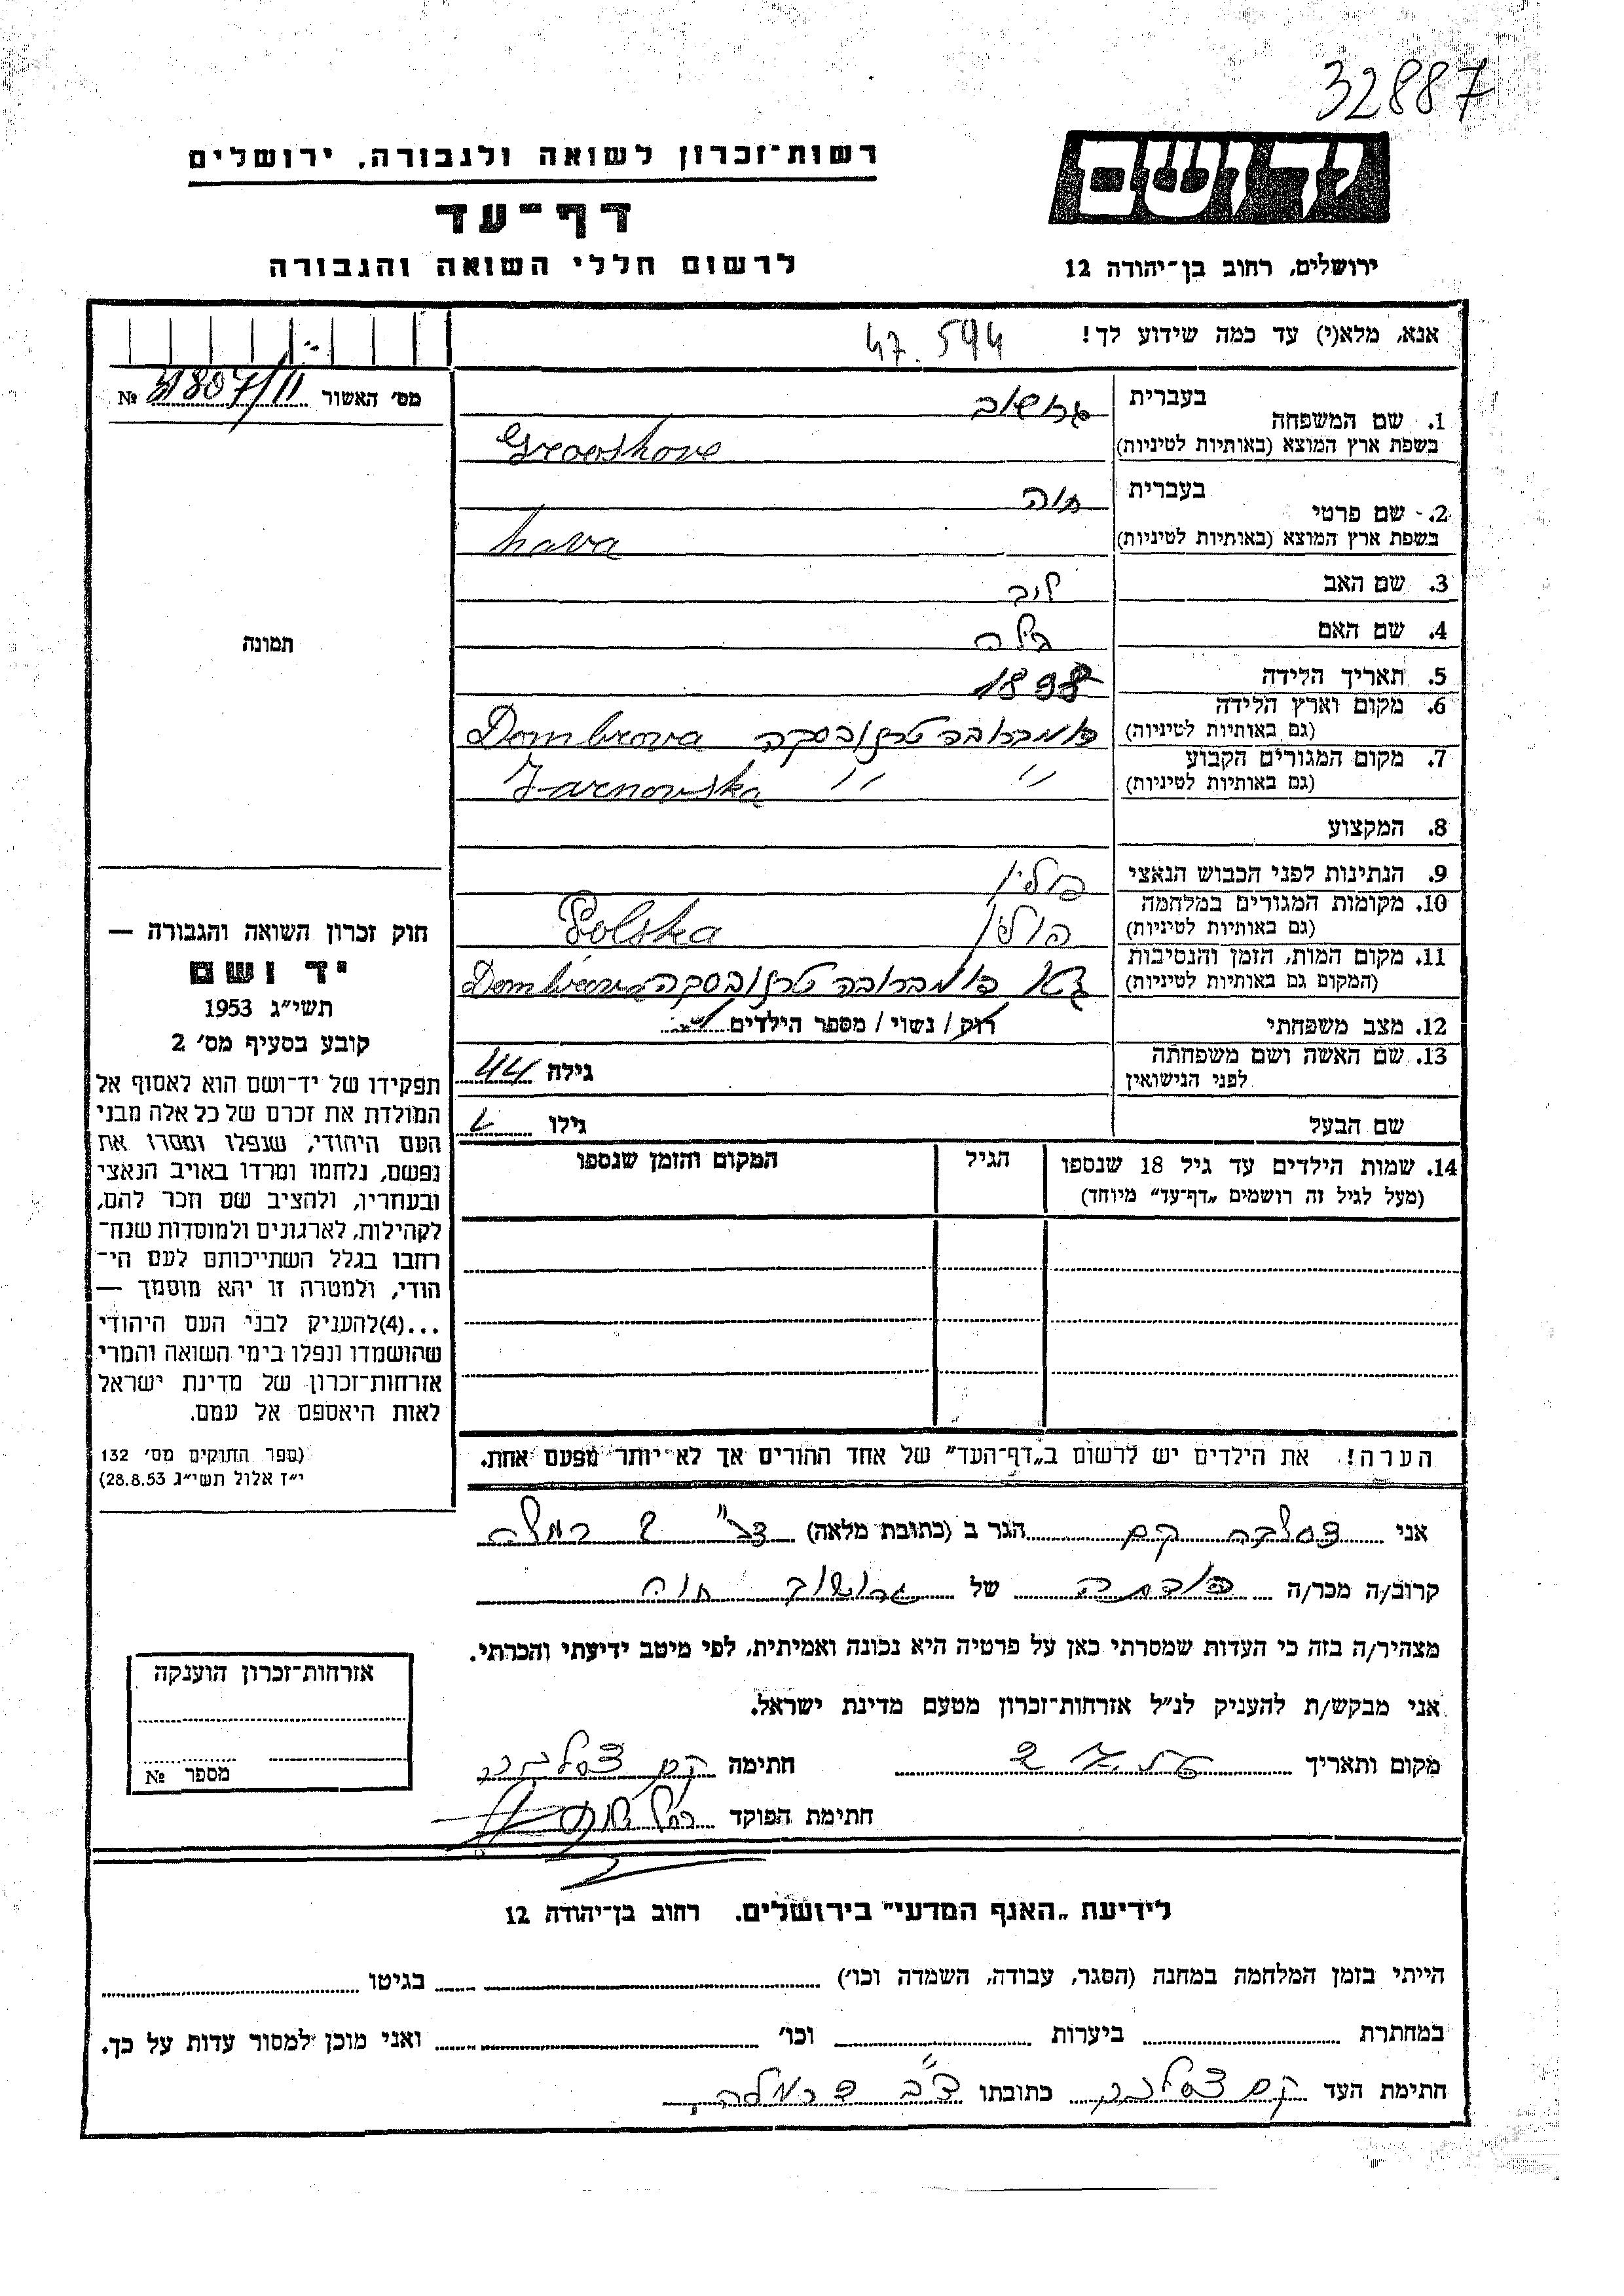 32887
רשות־זכרון לשואה ולגבורה, ירושלים
יד ושם
דף־עד
לרשום חללי השואה והגבורה
ירושלים, רחוב בן־יהודה 12
אנא, מלא(י) עד כמה שידוע לך!
47.594
מס׳ האשור 31807/11 №
תמונה
1. שם המשפחה
בעברית
גרושוב
בשפת ארץ המוצא (באותיות לטיניות)
Grooshove
2. שם פרטי
בעברית
חוה
בשפת ארץ המוצא (באותיות לטיניות)
hava
3. שם האב
ליב
4. שם האם
בילה
5. תאריך הלידה
1898
6. מקום וארץ הלידה
(גם באותיות לטיניות)
דומברובה טרנובסקה Dombrowa
7. מקום המגורים הקבוע
(גם באותיות לטיניות)
״ ״ Tarnowska
8. המקצוע
9. הנתינות לפני הכבוש הנאצי
פולין
10. מקומות המגורים במלחמה
(גם באותיות לטיניות)
פולין Polska
11. מקום המות, הזמן והנסיבות
(המקום גם באותיות לטיניות)
גטו דומברובה טרנובסקה Dombrowa
12. מצב משפחתי
רווק / נשוי / מספר הילדים
13. שם האשה ושם משפחתה
לפני הנישואין
גילה 44
שם הבעל
גילו
14. שמות הילדים עד גיל 18 שנספו
(מעל לגיל זה רושמים „דף־עד״ מיוחד)
הגיל
המקום והזמן שנספו
הערה! את הילדים יש לרשום ב„דף־העד״ של אחד ההורים אך לא יותר מפעם אחת.
חוק זכרון השואה והגבורה —
יד ושם
תשי״ג 1953
קובע בסעיף מס׳ 2
תפקידו של יד־ושם הוא לאסוף אל
המולדת את זכרם של כל אלה מבני
העם היהודי, שנפלו ומסרו את
נפשם, נלחמו ומרדו באויב הנאצי
ובעוזריו, ולהציב שם וזכר להם,
לקהילות, לארגונים ולמוסדות שנח־
רבו בגלל השתייכותם לעם הי־
הודי, ולמטרה זו יהא מוסמך —
...(4)להעניק לבני העם היהודי
שהושמדו ונפלו בימי השואה והמרי
אזרחות־זכרון של מדינת ישראל
לאות היאספם אל עמם.
(ספר החוקים מס׳ 132
י״ז אלול תשי״ג 28.8.53)
אני קם הגר ב (כתובת מלאה) רמלה
קרוב/ה מכר/ה של גרושוב חוה
מצהיר/ה בזה כי העדות שמסרתי כאן על פרטיה היא נכונה ואמיתית, לפי מיטב ידיעתי והכרתי.
אני מבקש/ת להעניק לנ״ל אזרחות־זכרון מטעם מדינת ישראל.
מקום ותאריך
חתימה קם
חתימת הפוקד
אזרחות־זכרון הוענקה
מספר №
לידיעת „האגף המדעי״ בירושלים. רחוב בן־יהודה 12
הייתי בזמן המלחמה במחנה (הסגר, עבודה, השמדה וכו׳) בגיטו
במחתרת ביערות וכו׳ ואני מוכן למסור עדות על כך.
חתימת העד קם כתובתו רמלה